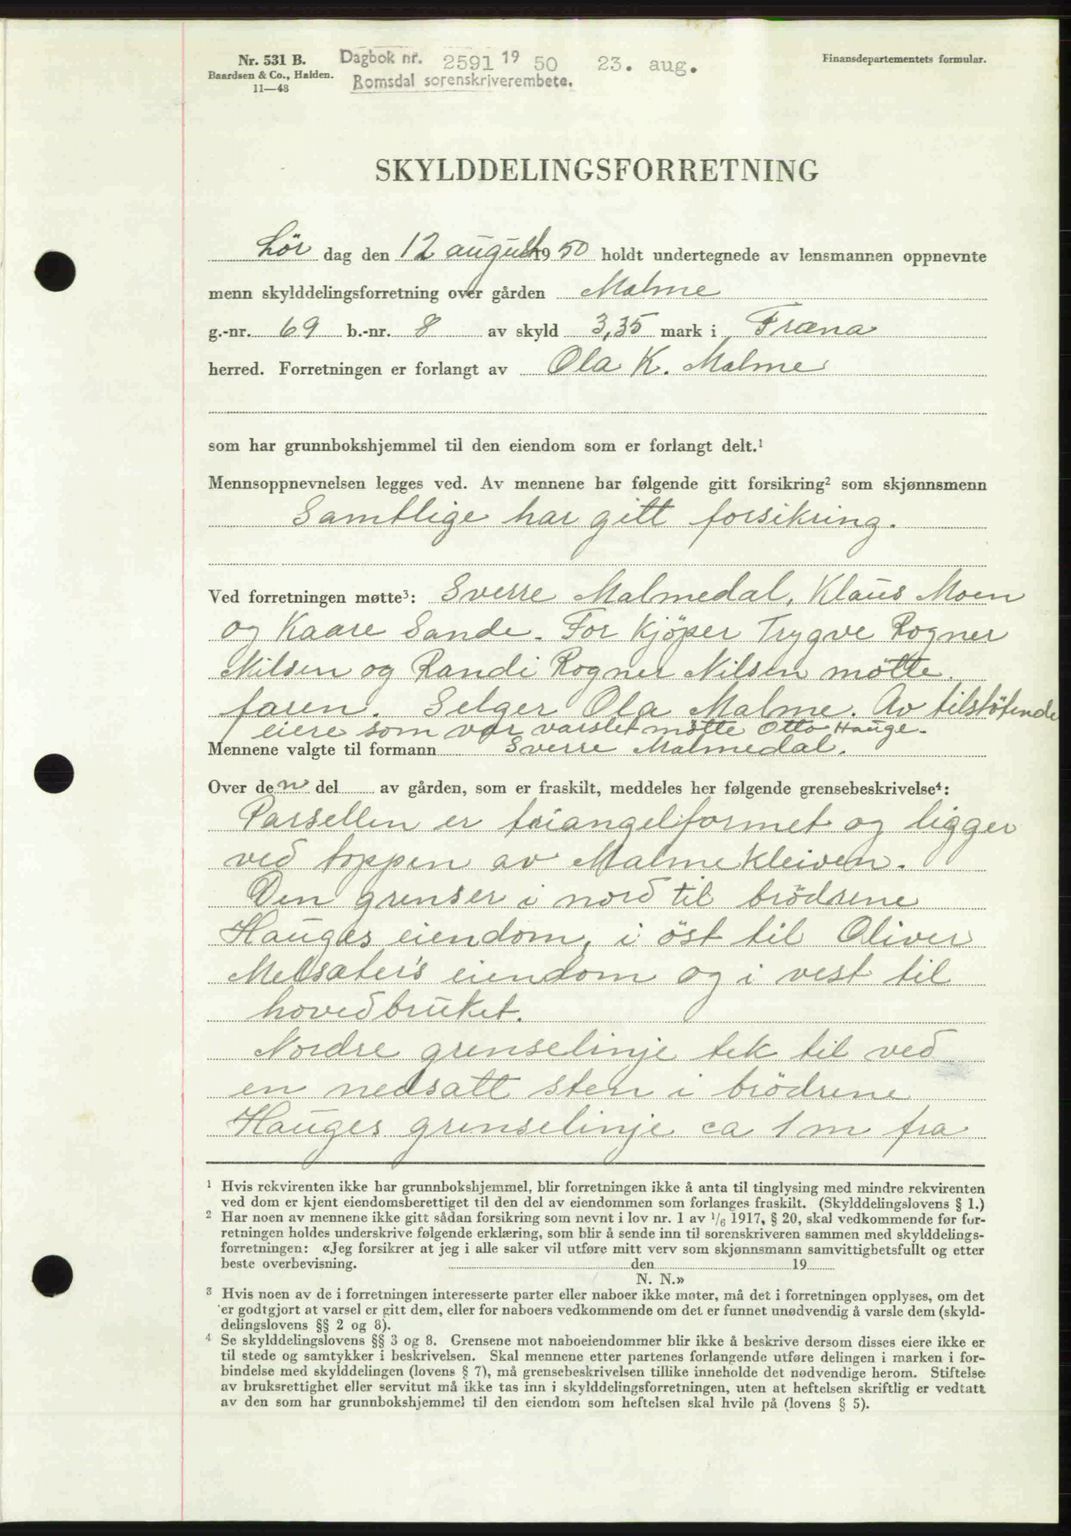 Nr. 531 B.
Baardsen & Co., Halden.
11—48
Dagbok nr. 2591 19 50 23. aug.
Romsdal sorenskriverembete.
Finansdepartementets formular.
SKYLDDELINGSFORRETNING
Lör dag den 12 august 1950 holdt undertegnede av lensmannen oppnevnte
menn skylddelingsforretning over gården Malme
g.-nr. 69 b.-nr. 8 av skyld 3,35 mark i Fræna
herred. Forretningen er forlangt av Ola K. Malme
som har grunnbokshjemmel til den eiendom som er forlangt delt.¹
Mennsoppnevnelsen legges ved. Av mennene har følgende gitt forsikring² som skjønnsmenn
Samtlige har gitt forsikring.
Ved forretningen møtte³: Sverre Malmedal, Klaus Moen
og Kaare Sande. For Kjöper Trygve Rogner
Nilsen og Randi Rogner Nilsen mötte
faren. Selger Ola Malme. Av tilstötende
eiere som var varslet mötte Otto Hauge.
Mennene valgte til formann Sverre Malmedal.
Over den del av gården, som er fraskilt, meddeles her følgende grensebeskrivelse⁴:
Parsellen er triangelformet og ligger
ved toppen av Malmekleiven.
Den grenser i nord til brödrene
Hauges eiendom, i öst til Oliver
Melsæter's eiendom og i vest til
hovedbruket.
Nordre grenselinje tek til ved
en nedsatt sten i brödrene
Hauges grenselinje ca 1 m fra
¹ Hvis rekvirenten ikke har grunnbokshjemmel, blir forretningen ikke å anta til tinglysing med mindre rekvirenten
ved dom er kjent eiendomsberettiget til den del av eiendommen som forlanges fraskilt. (Skylddelingslovens § 1.)
² Har noen av mennene ikke gitt sådan forsikring som nevnt i lov nr. 1 av 1/6 1917, § 20, skal vedkommende før for-
retningen holdes underskrive følgende erklæring, som blir å sende inn til sorenskriveren sammen med skylddelings-
forretningen: «Jeg forsikrer at jeg i alle saker vil utføre mitt verv som skjønnsmann samvittighetsfullt og etter
beste overbevisning. den 19
N. N.»
³ Hvis noen av de i forretningen interesserte parter eller naboer ikke møter, må det i forretningen opplyses, om det
er godtgjort at varsel er gitt dem, eller for naboers vedkommende om det er funnet unødvendig å varsle dem (skyld-
delingslovens §§ 2 og 8).
⁴ Se skylddelingslovens §§ 3 og 8. Grensene mot naboeiendommer blir ikke å beskrive dersom disses eiere ikke er
til stede og samtykker i beskrivelsen. Skal mennene etter partenes forlangende utføre delingen i marken i for-
bindelse med skylddelingen (lovens § 7), må grensebeskrivelsen tillike inneholde det nødvendige herom. Stiftelse
av bruksrettighet eller servitut må ikke tas inn i skylddelingsforretningen, uten at heftelsen skriftlig er vedtatt
av den som har grunnbokshjemmel til den eiendom som heftelsen skal hvile på (lovens § 5).